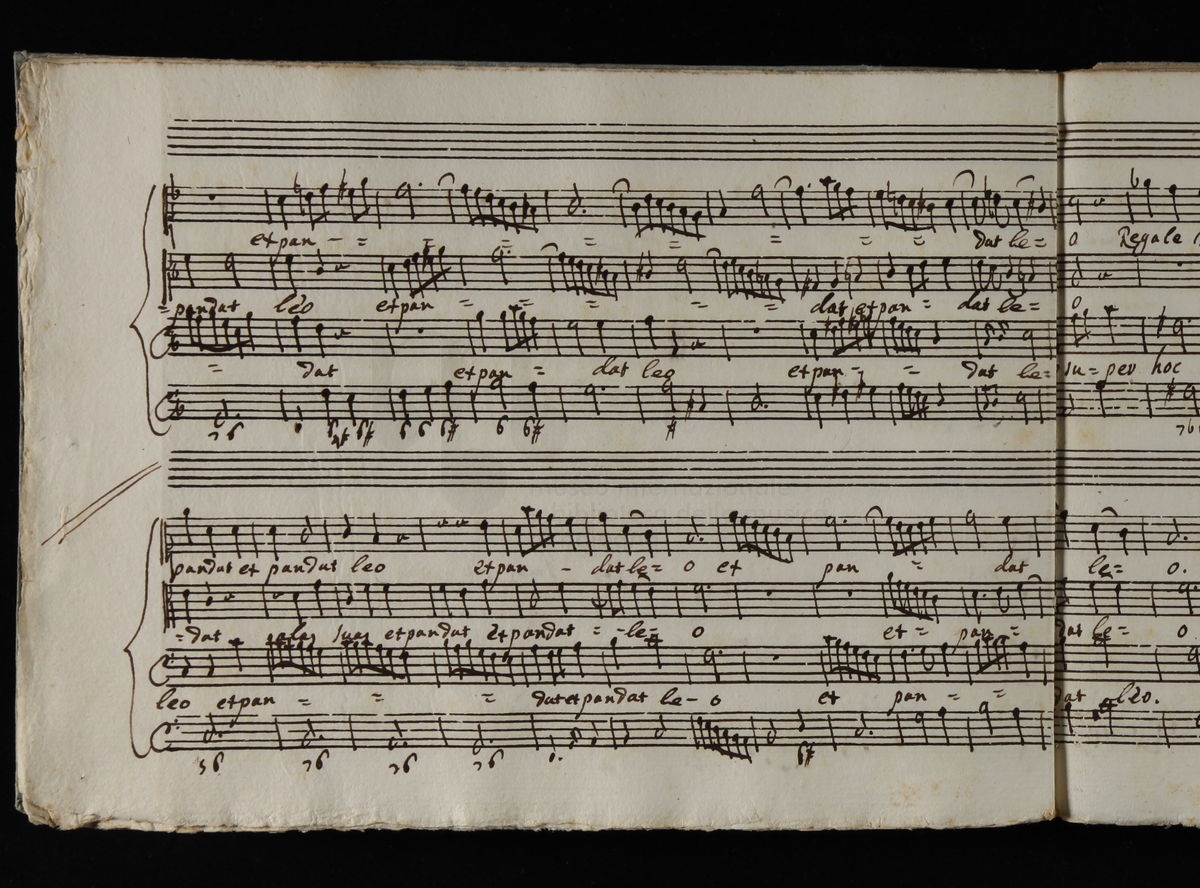 et pan - = = = = = = = = dat le= o Regale
= pandat leo et pan = = = = = dat et pan = dat le= o
= dat et pan = dat leo et pan = = dat le= su= per hoc
76 6 6# 6 6 6# 6 6# # 76
museo internazionale
pandat et pandat leo et pan - dat le= o et pan = dat le= o.
=dat alas suas et pandat et pandat = -le= o et = pan = dat le= o
leo et pan = = = dat et pandat le- o et pan = = dat leo.
56 76 76 76 6#